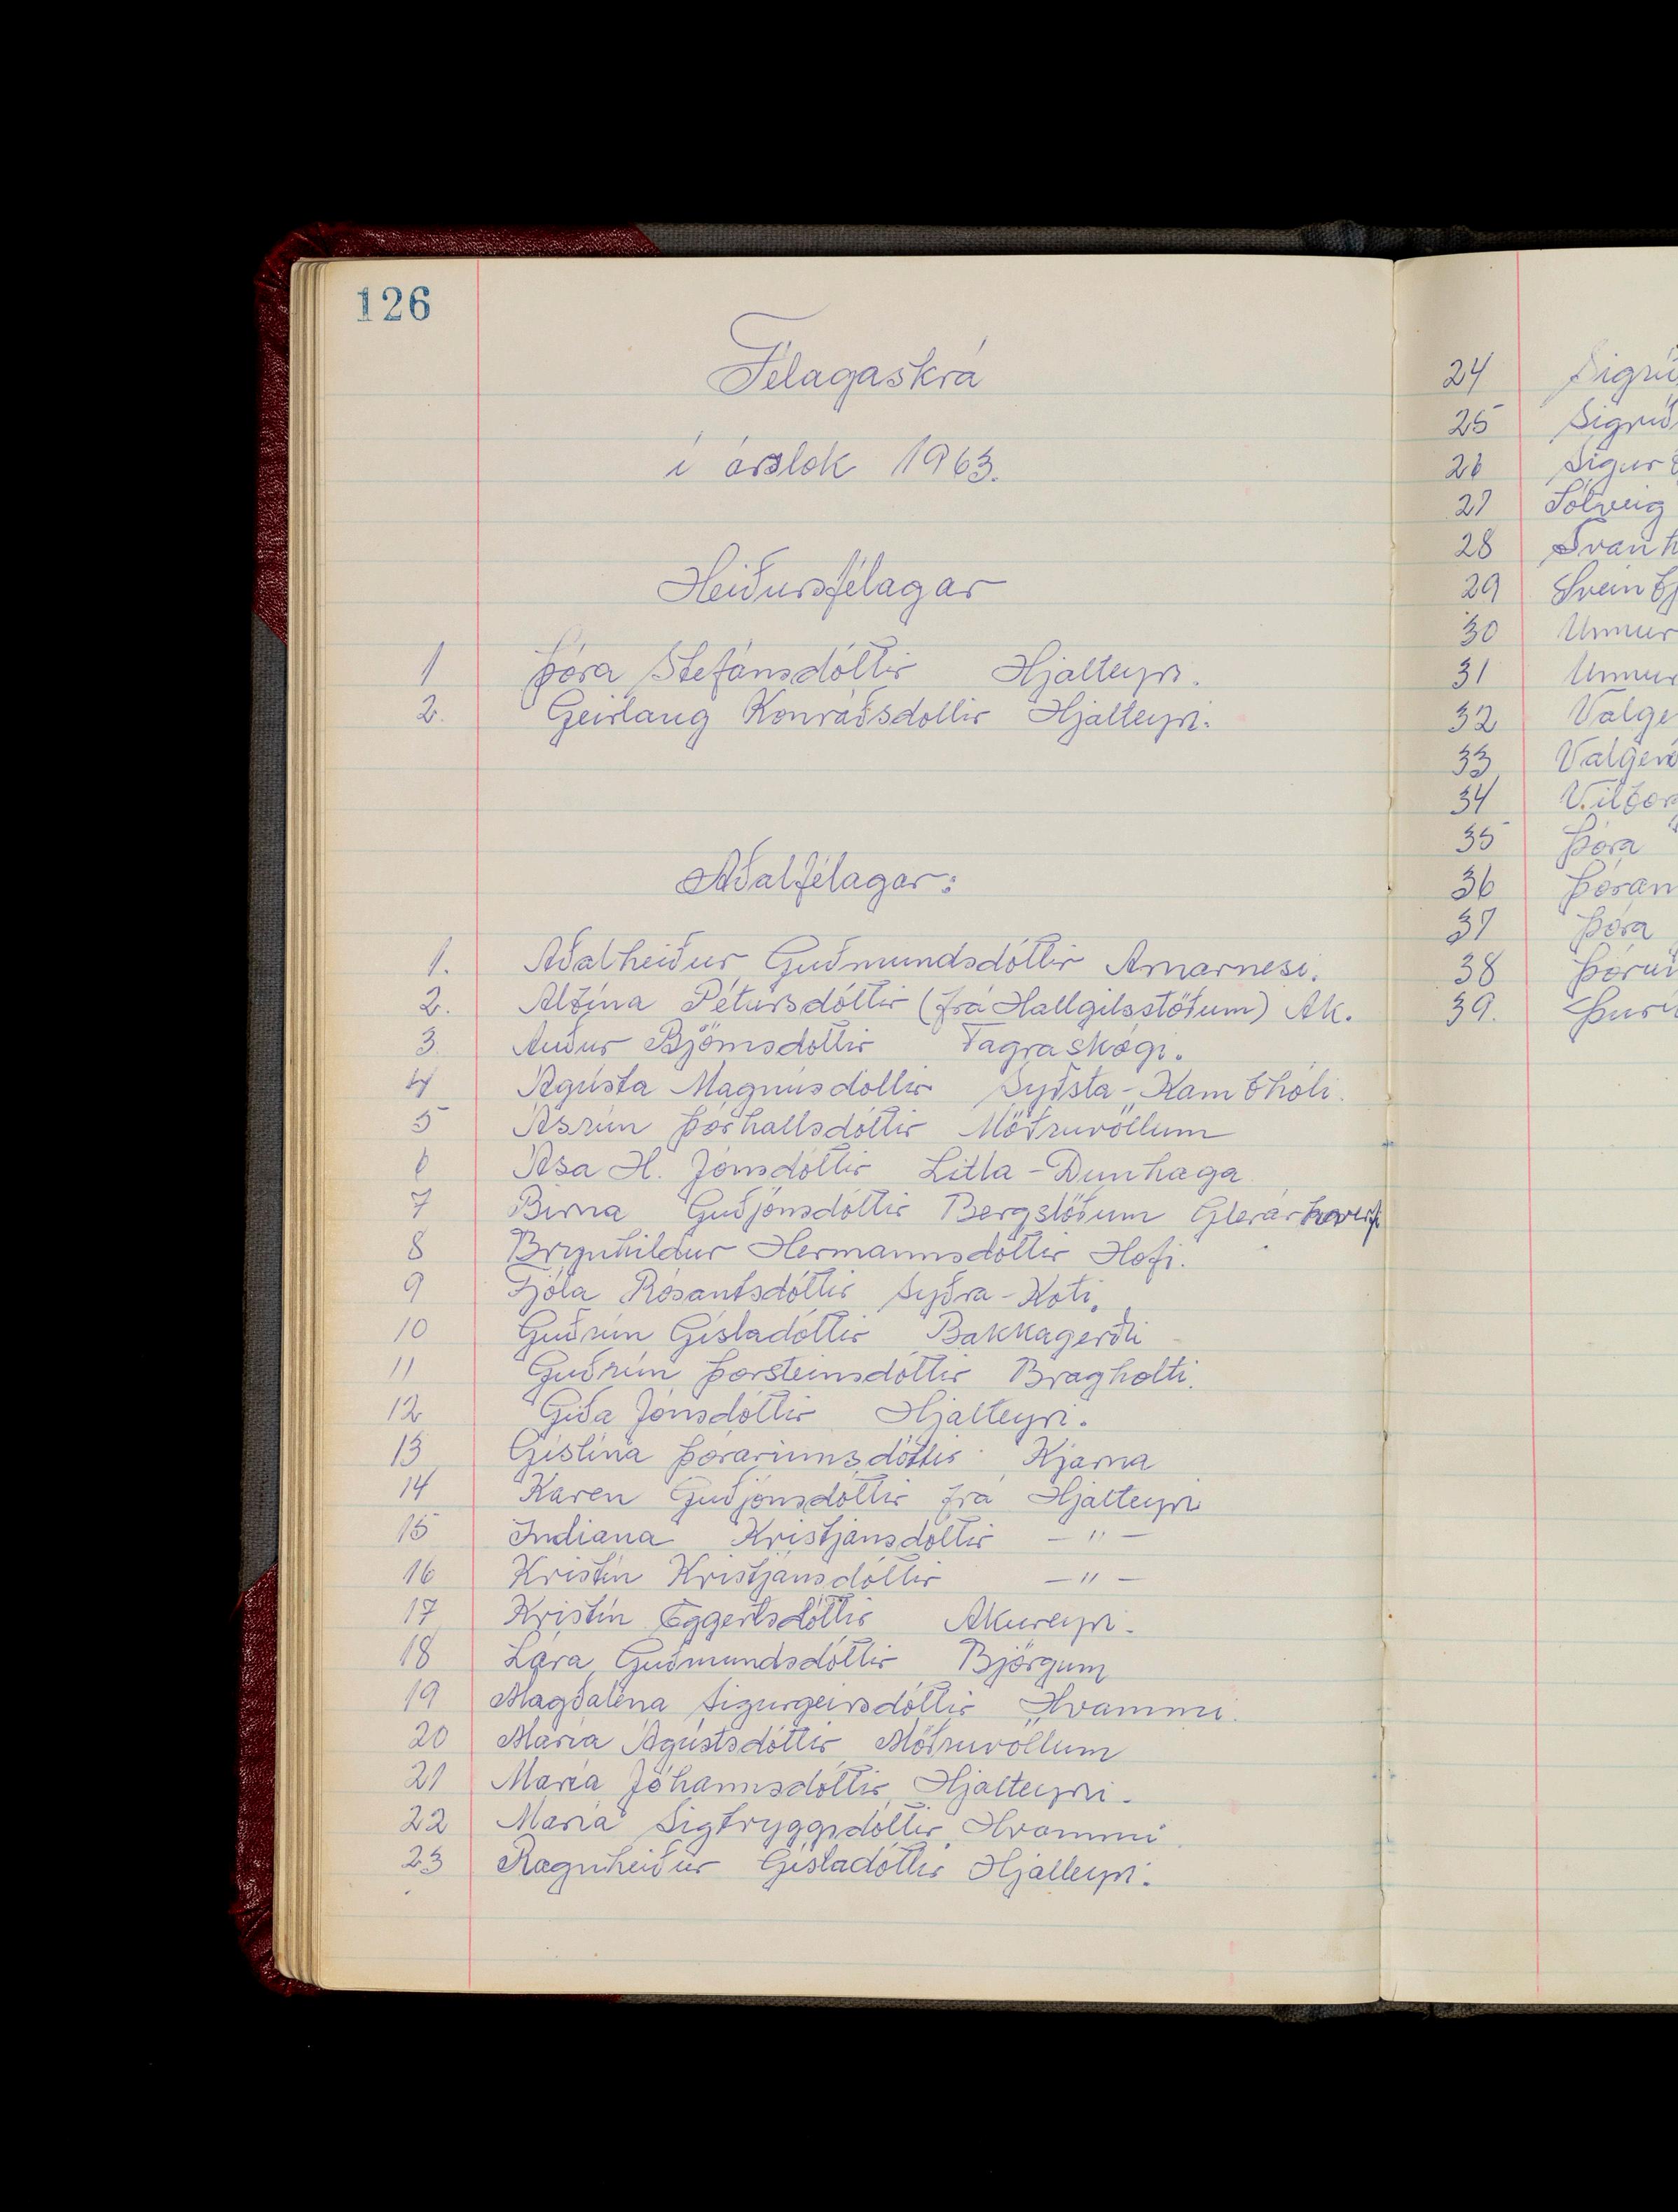 126
Félagaskrá
í árslok 1963.
Heiðursfélagar
1 Þóra Stefánsdóttir Hjalteyri.
2. Geirlaug Konráðsdóttir Hjalteyri.
Aðalfélagar:
1. Aðalheiður Guðmundsdóttir Arnarnesi.
2. Albína Pétursdóttir (frá Hallgilsstöðum) Ak.
3. Auður Björnsdóttir Fagraskógi.
4 Ágústa Magnúsdóttir Syðsta-Kambhóli.
5 Ásrún Þórhallsdóttir Möðruvöllum
6 Ása H. Jónsdóttir Litla-Dunhaga
7 Birna Guðjónsdóttir Bergstöðum Glerárhverfi
8 Brynhildur Hermannsdóttir Hofi.
9 Fjóla Rósantsdóttir Syðra-Koti.
10 Guðrún Gísladóttir Bakkagerði
11 Guðrún Þorsteinsdóttir Bragholti.
12 Gíða Jónsdóttir Hjalteyri.
13 Gíslína Þórarinnsdóttir Kjarna
14 Karen Guðjónsdóttir frá Hjalteyri
15 Indíana Kristjánsdóttir — " —
16 Kristín Kristjánsdóttir — " —
17 Kristín Eggertsdóttir Akureyri.
18 Lára Guðmundsdóttir Björgum
19 Magðalena Sigurgeirsdóttir Hvammi.
20 María Ágústsdóttir Möðruvöllum
21 María Jóhannsdóttir Hjalteyri.
22 María Sigtryggsdóttir Hvammi
23 Ragnheiður Gísladóttir Hjalteyri.
24 Sigrí
25 Sigríð
26 Sigurð
27 Sólveig
28 Svanh
29 Sveinbj
30 Unnur
31 Unnur
32 Valge
33 Valgerð
34 Vilbor
35 Þóra
36 Þóran
37 Þóra
38 Þórun
39. Þurí